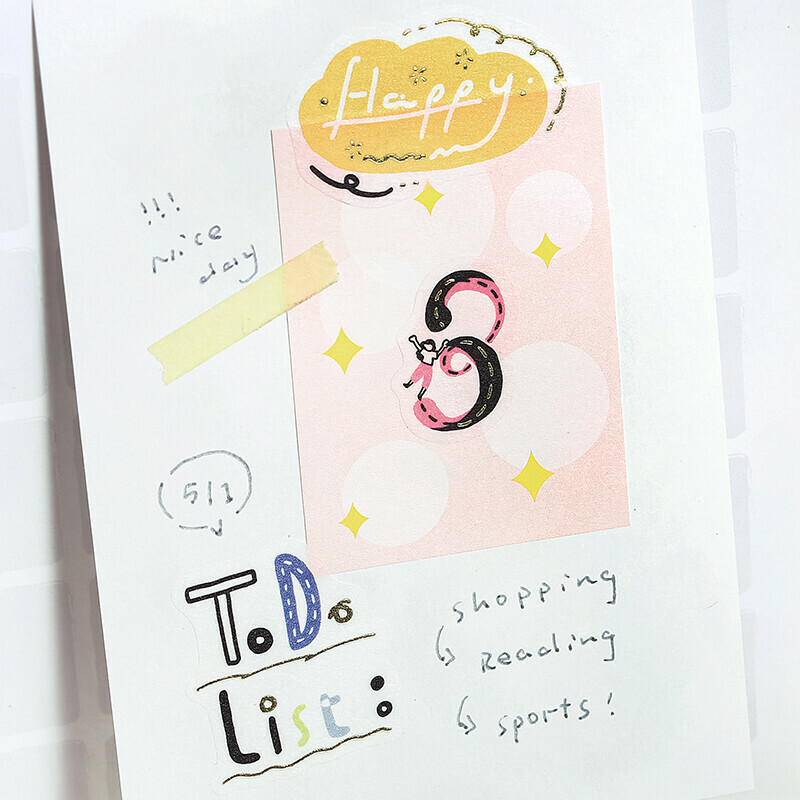 Happy.
!!!
Nice
day
3
5/1
ToDo
List:
shopping
Reading
sports!